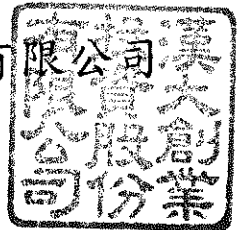 有限公司
漢大創業
投資股份
有限公司